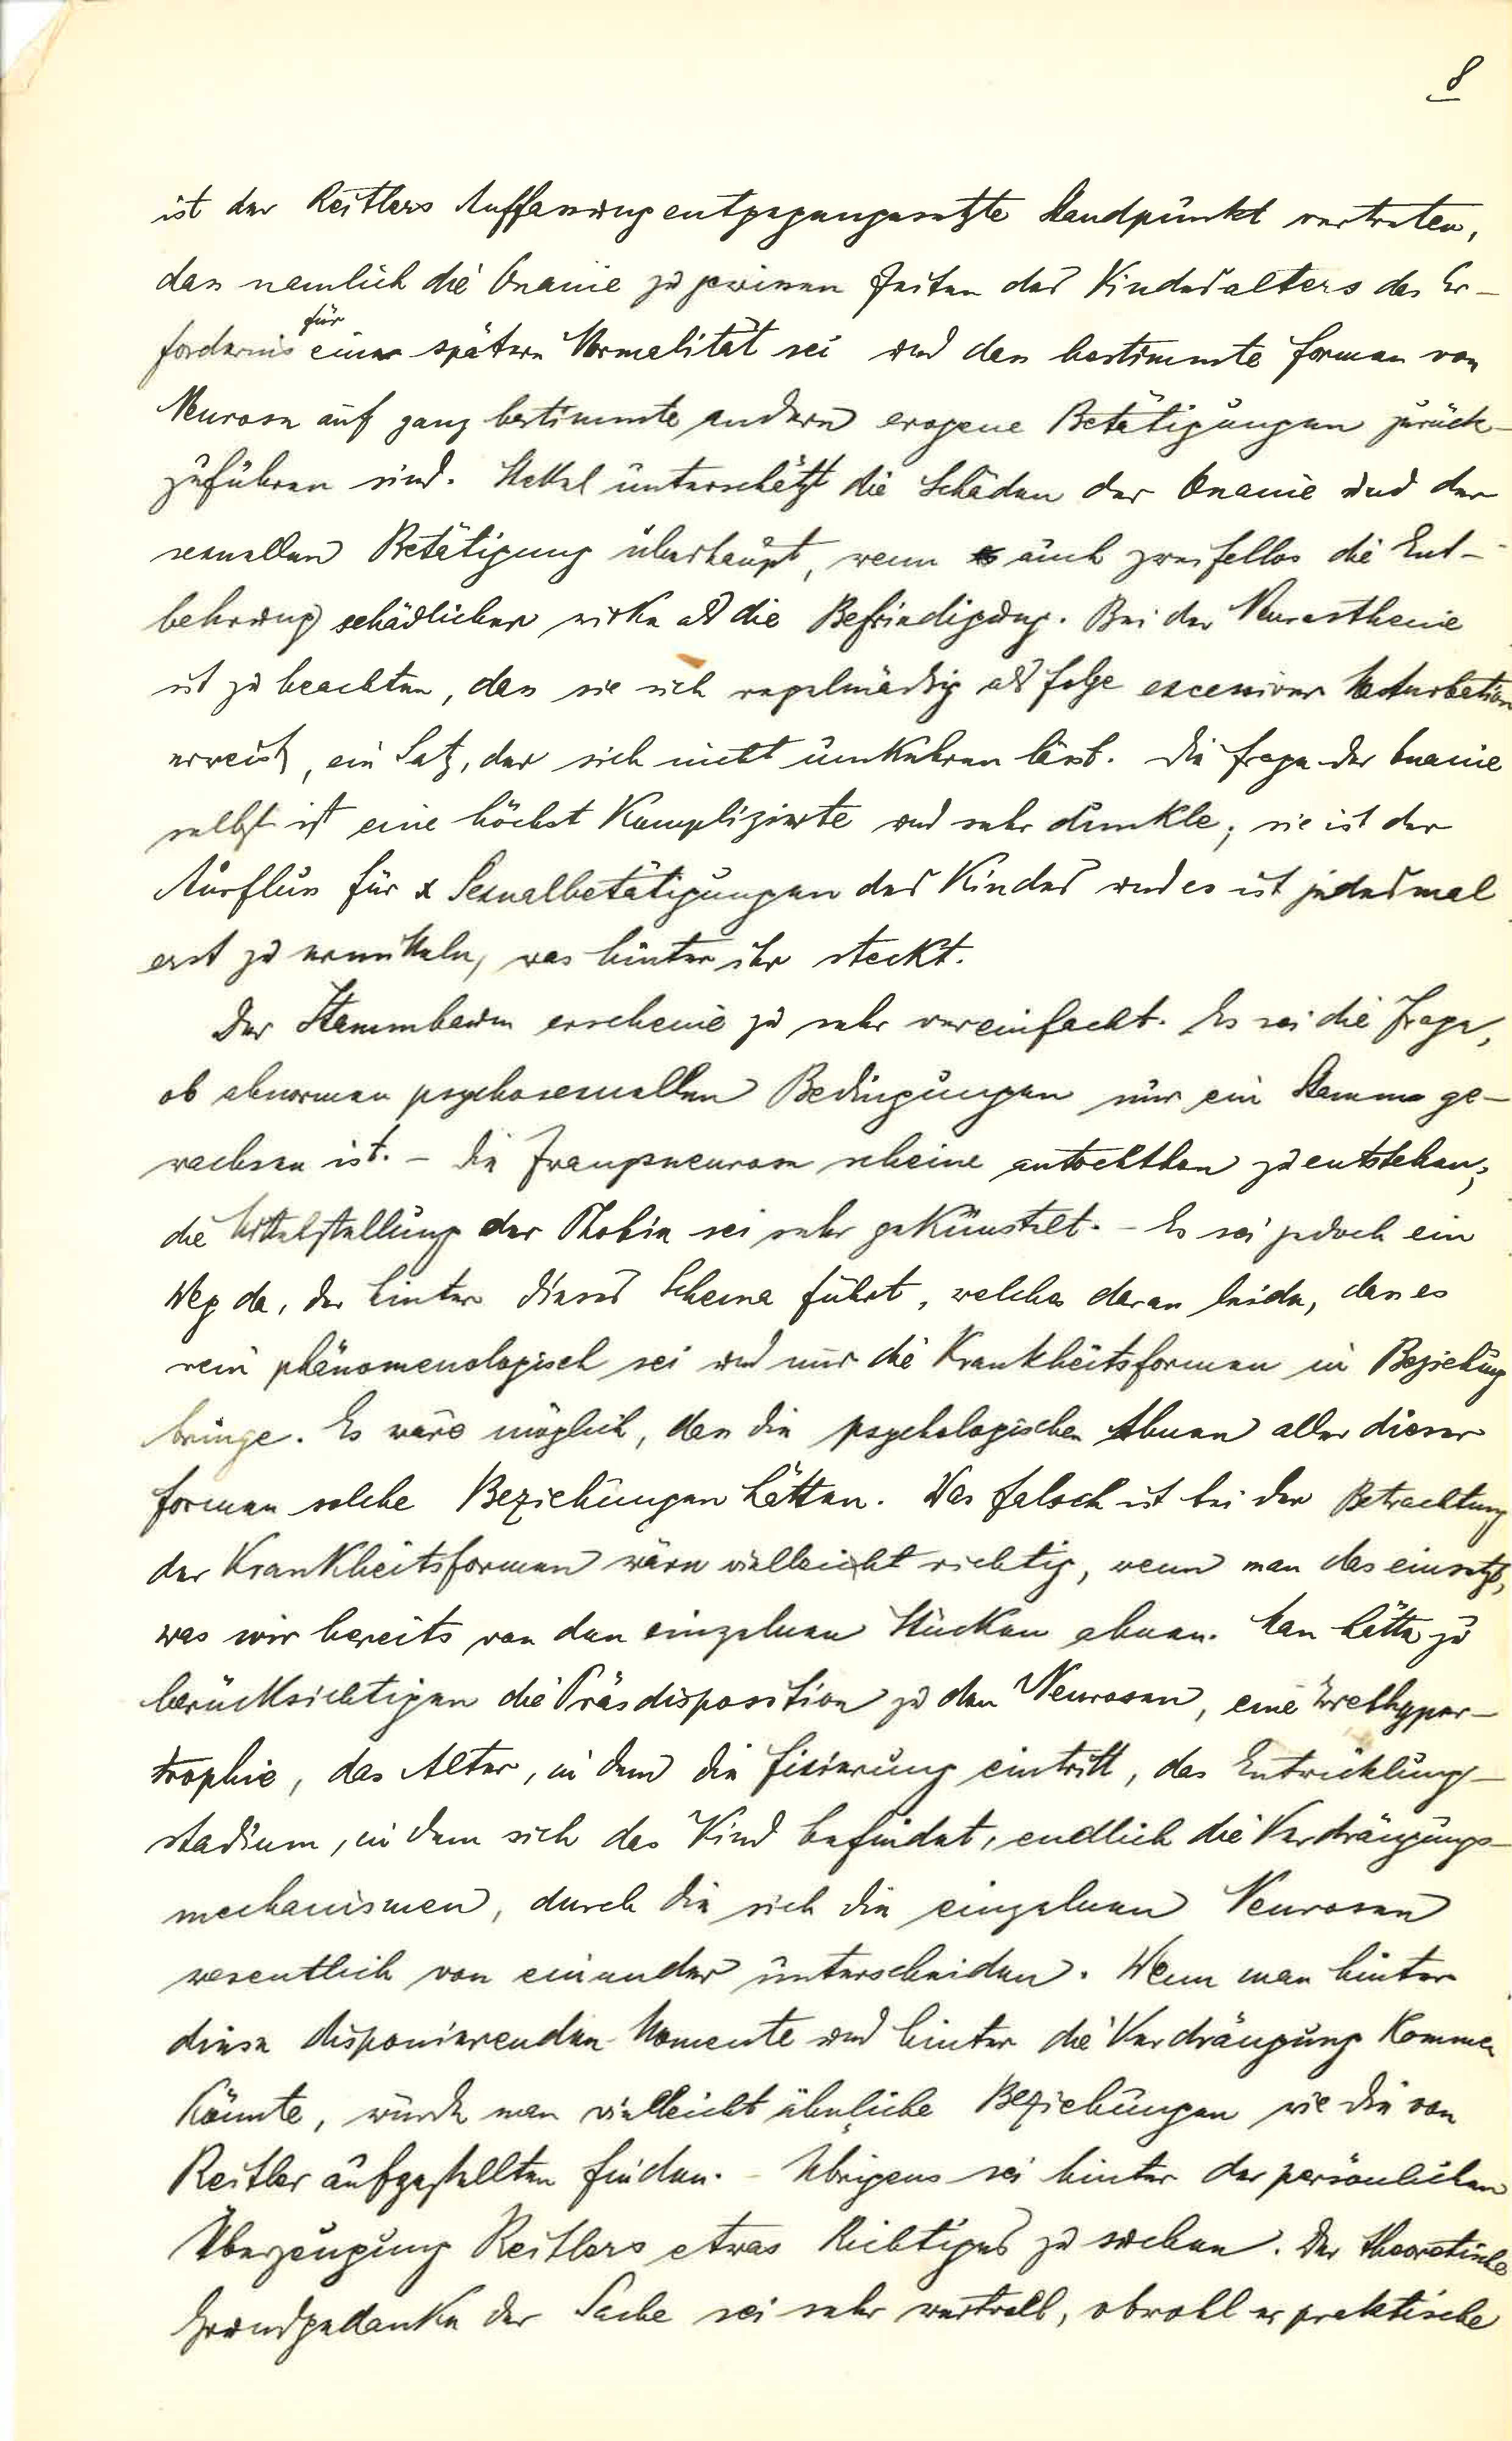 8
ist der Reitlers Auffassung entgegengesetzte Standpunkt vertreten,
dass nemlich die Onanie zu gewissen Zeiten des Kindesalters das Er-
für
fordernis einer spätern Normalität sei und dass bestimmte Formen von
Neurose auf ganz bestimmte andern erogene Betätigungen zurück-
zuführen sind. Stekel unterschätzt die Schäden der Onanie und der
sexuellen Betätigung überhaupt, wenn auch zweifellos die Ent-
behrung schädlicher wirke als die Befriedigung. Bei der Neurasthenie
ist zu beachten, dass sie sich regelmässig als Folge excessiver Masturbation
erweist, ein Satz, der sich nicht umkehren lässt. Die Frage der Onanie
selbst ist eine höchst komplizierte und sehr dunkle; sie ist der
Ausfluss für x Sexualbetätigungen des Kindes und es ist jedesmal
erst zu ermitteln, was hinter ihr steckt.
Der Stammbaum erscheine zu sehr vereinfacht. Es sei die Frage,
ob abnormen psychosexuellen Bedingungen nur ein Stamm ge-
wachsen ist. – Die Zwangsneurose scheine autochthon zu entstehen;
die Mittelstellung der Phobie sei sehr gekünstelt. – Es sei jedoch ein
Weg da, der hinter dieses Schema führt, welches daran leide, dass es
rein phänomenologisch sei und nur die Krankheitsformen in Beziehung
bringe. Es wäre möglich, dass die psychologischen Ahnen aller dieser
Formen solche Beziehungen hätten. Was falsch ist bei der Betrachtung
der Krankheitsformen wäre vielleicht richtig, wenn man das einsetzt,
was wir bereits von den einzelnen Stücken ahnen. Man hätte zu
berücksichtigen die Präsdisposition zu den Neurosen, eine Urethyper-
trophie, das Alter, in dem die Fixierung eintritt, das Entwicklungs-
stadium, in dem sich das Kind befindet, endlich die Verdrängungs-
mechanismen, durch die sich die einzelnen Neurosen
wesentlich von einander unterscheiden. Wenn man hinter
diese disponierenden Momente und hinter die Verdrängung kommen
könnte, würde man vielleicht ähnliche Beziehungen wie die von
Reitler aufgestellten finden. – Übrigens sei hinter der persönlichen
Überzeugung Reitlers etwas Richtiges zu suchen. Der theoretische
Grundgedanke der Sache sei sehr wertvoll, obwohl er praktische